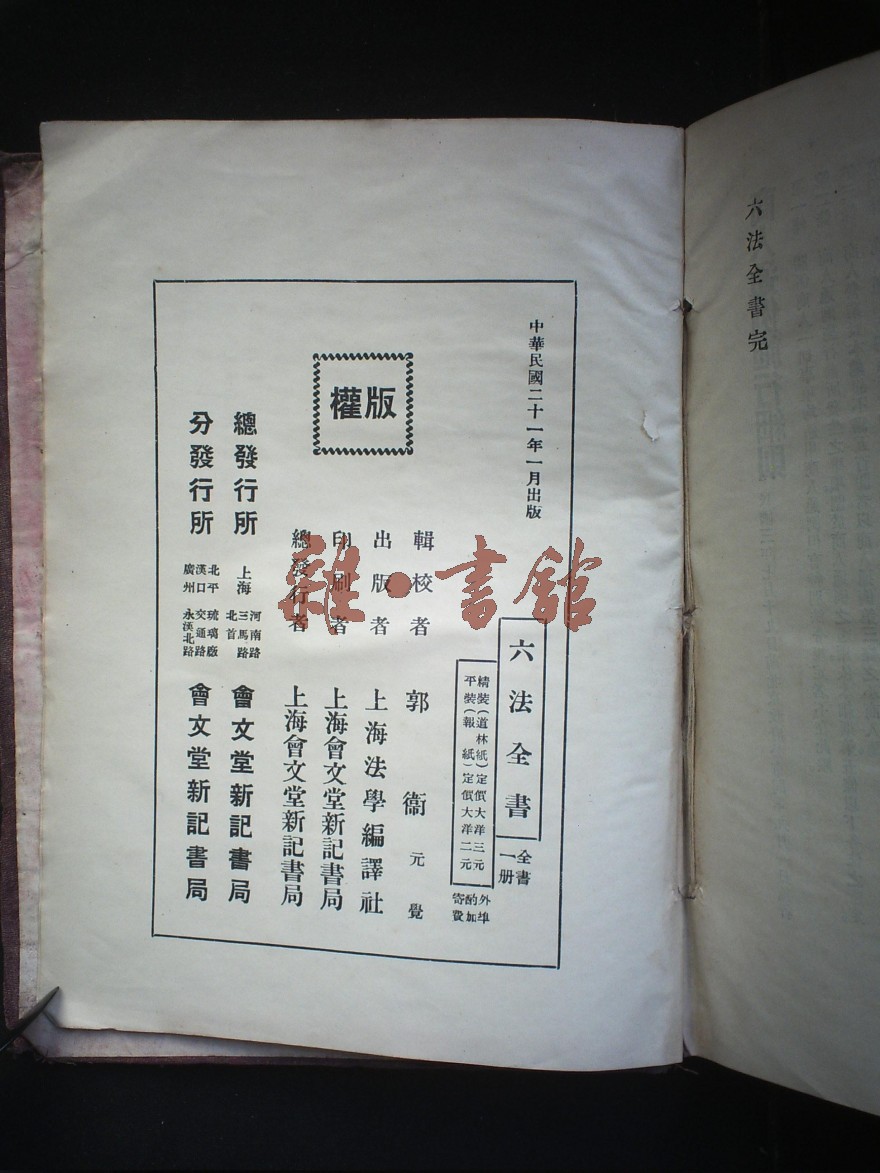 六法全書完
中華民國二十一年一月出版
六法全書
全書一册
精裝(道林紙)定價大洋三元
平裝(報紙)定價大洋二元
外埠酌加寄費
輯校者 郭衞元覺
出版者 上海法學編譯社
印刷者 上海會文堂新記書局
總發行者 上海會文堂新記書局
版權
總發行所 上海 河南路三馬路北首 會文堂新記書局
分發行所 北平琉璃廠 漢口交通路 廣州永漢北路 會文堂新記書局
雜·書館